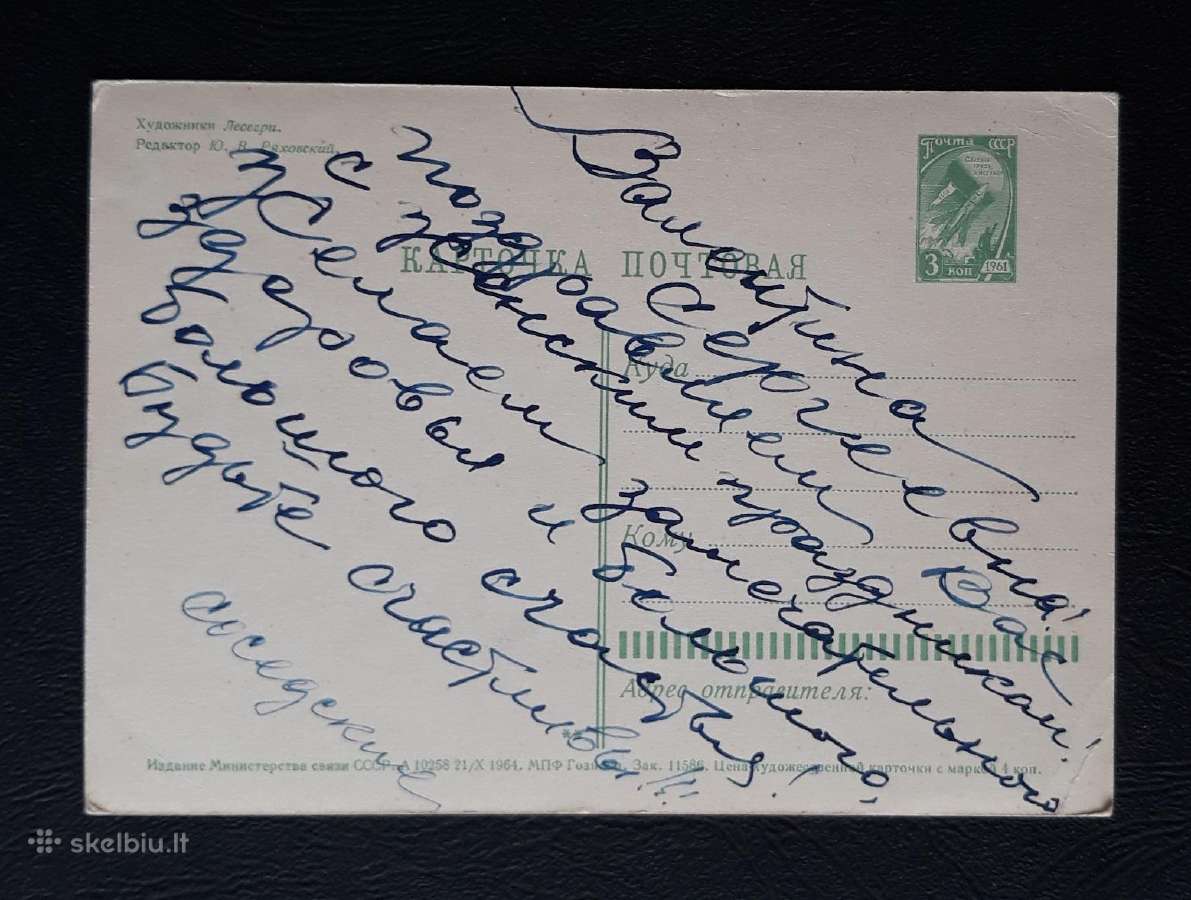 Художники Лесегри.
Редактор Ю. В. Ряховский.
Почта СССР
3 коп 1961
КАРТОЧКА ПОЧТОВАЯ
Куда
Кому
Адрес отправителя:
Валентина
Сергеевна!
Поздравляем Вас
с женским праздником!
Желаем замечательного
здоровья и большого,
большого счастья!
Будьте счастливы!!!
соседские
Издание Министерства связи СССР. А 10258 21/X 1964. МПФ Гознака. Зак. 11586. Цена художественной карточки с маркой 4 коп.
skelbiu.lt